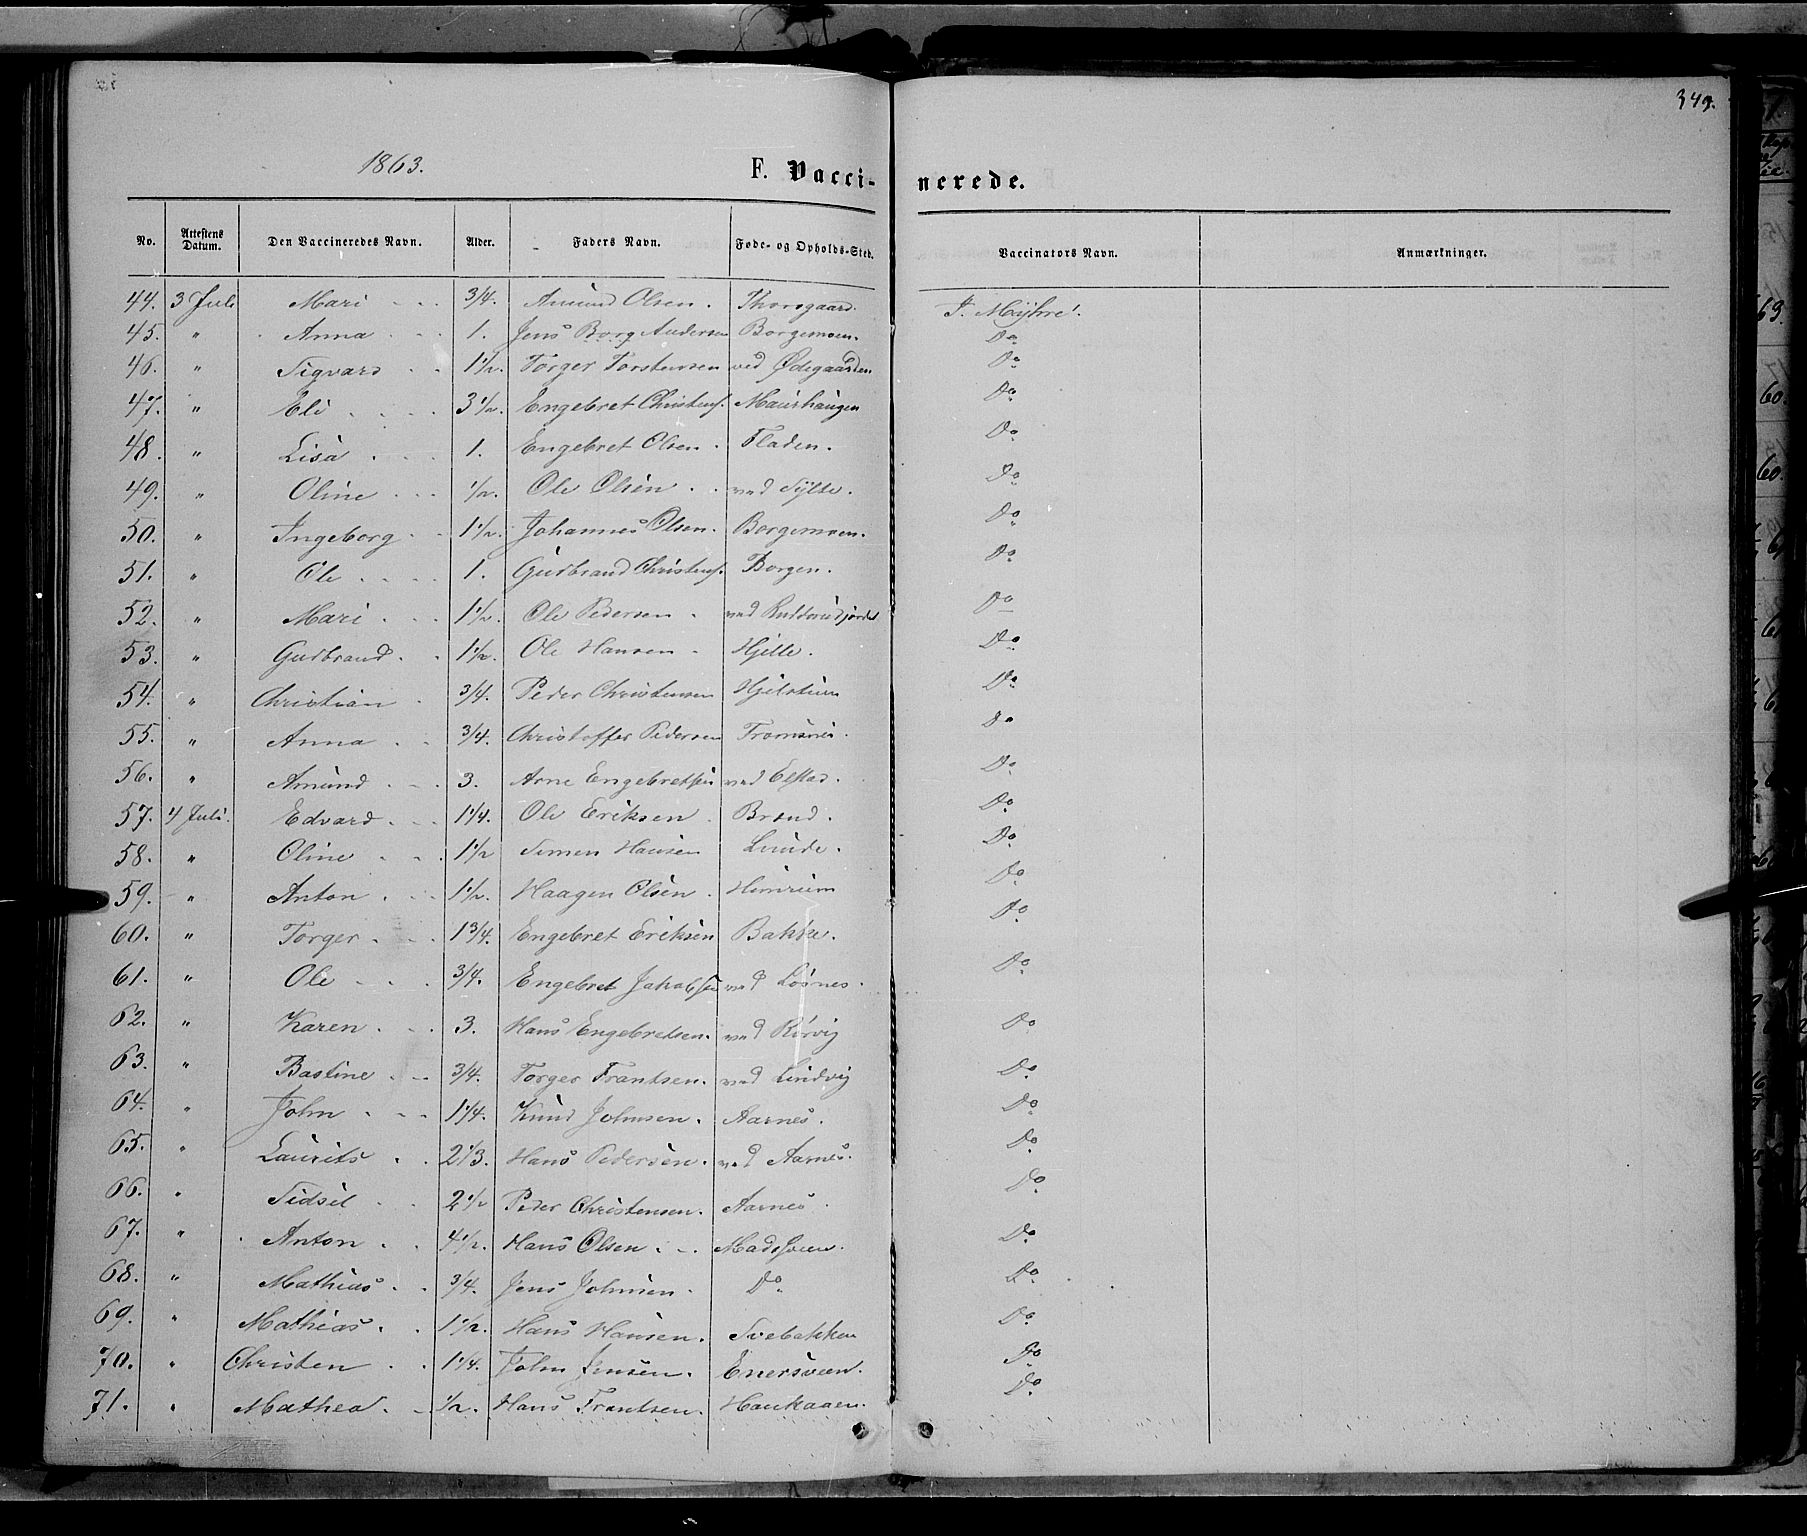 349.
1863.
F. Vaccinerede.
No. Attestens Datum. Den Vaccineredes Navn. Alder. Faders Navn. Føde- og Opholds-Sted. Vaccinators Navn. Anmærkninger.
44. 3 Juli Mari 3/4. Amund Olsen. Thorsgaard. J. Mÿhre
45. " Anna 1. Jens Borg Andersen Borgemoen. Do
46. " Sigvard 1 1/2. Torger Torstensen ved Ødegaarden Do
47. " Eli 3 1/2. Engebret Christens. Maurhaugen Do
48. " Lisa 1. Engebret Olsen. Fladen. Do
49. " Oline 1/2. Ole Olsen ved Sylte. Do
50. " Ingeborg 1 1/2. Johannes Olsen. Borgemoen. Do
51. " Ole 1. Gudbrand Christens. Borgen. Do
52. " Mari 1 1/2. Ole Pedersen ved Do
53. " Gudbrand 1 1/2. Ole Hansen Hjelle. Do
54. " Christian 3/4. Peder Christensen Hjelstuen Do
55. " Anna 3/4. Christoffer Pedersen Tromsnes. Do
56. " Amund 3. Arne Engebretsen ved Elstad. Do
57. 4 Juli. Edvard 1 1/4. Ole Eriksen Brand. Do
58. " Oline 1 1/2 Simen Hansen Lunde. Do
59. " Anton 1 1/2. Haagen Olsen Do
60. " Torger 1 3/4. Engebret Eriksen Bakke. Do
61. " Ole 3/4. Engebret Jakobsen ved Løsnes. Do
62. " Karen 3. Hans Engebretsen. ved Rørvig Do
63. " Bastine 3/4. Torger Frantsen. ved Lindvig Do
64. " John 1 1/4. Knud Johnsen. Aarnes. Do
65. " Laurits 2 1/3. Hans Pedersen. ved Aarnes. Do
66. " Sidsel 2 1/2 Peder Christensen. Aarnes. Do
67. " Anton 4 1/2. Hans Olsen Madssveen. Do
68. " Mathias 3/4. Jens Johnsen. Do Do
69. " Mathias. 1 1/2. Hans Hansen. Svebakken Do
70. " Christen 1 1/4. John Jensen. Enersveen. Do
71. " Mathea 1/2. Hans Frantsen. Haukaaen. Do